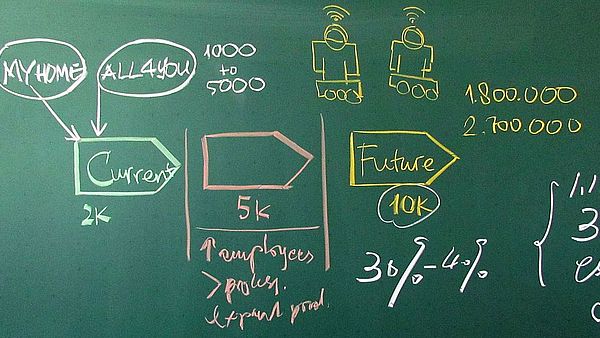 MYHOME
ALL4YOU
1000
to
5000
1.800.000
2.700.000
Current
Future
2K
5K
10K
↑ employees
30%-40%
>
expand prod.
3